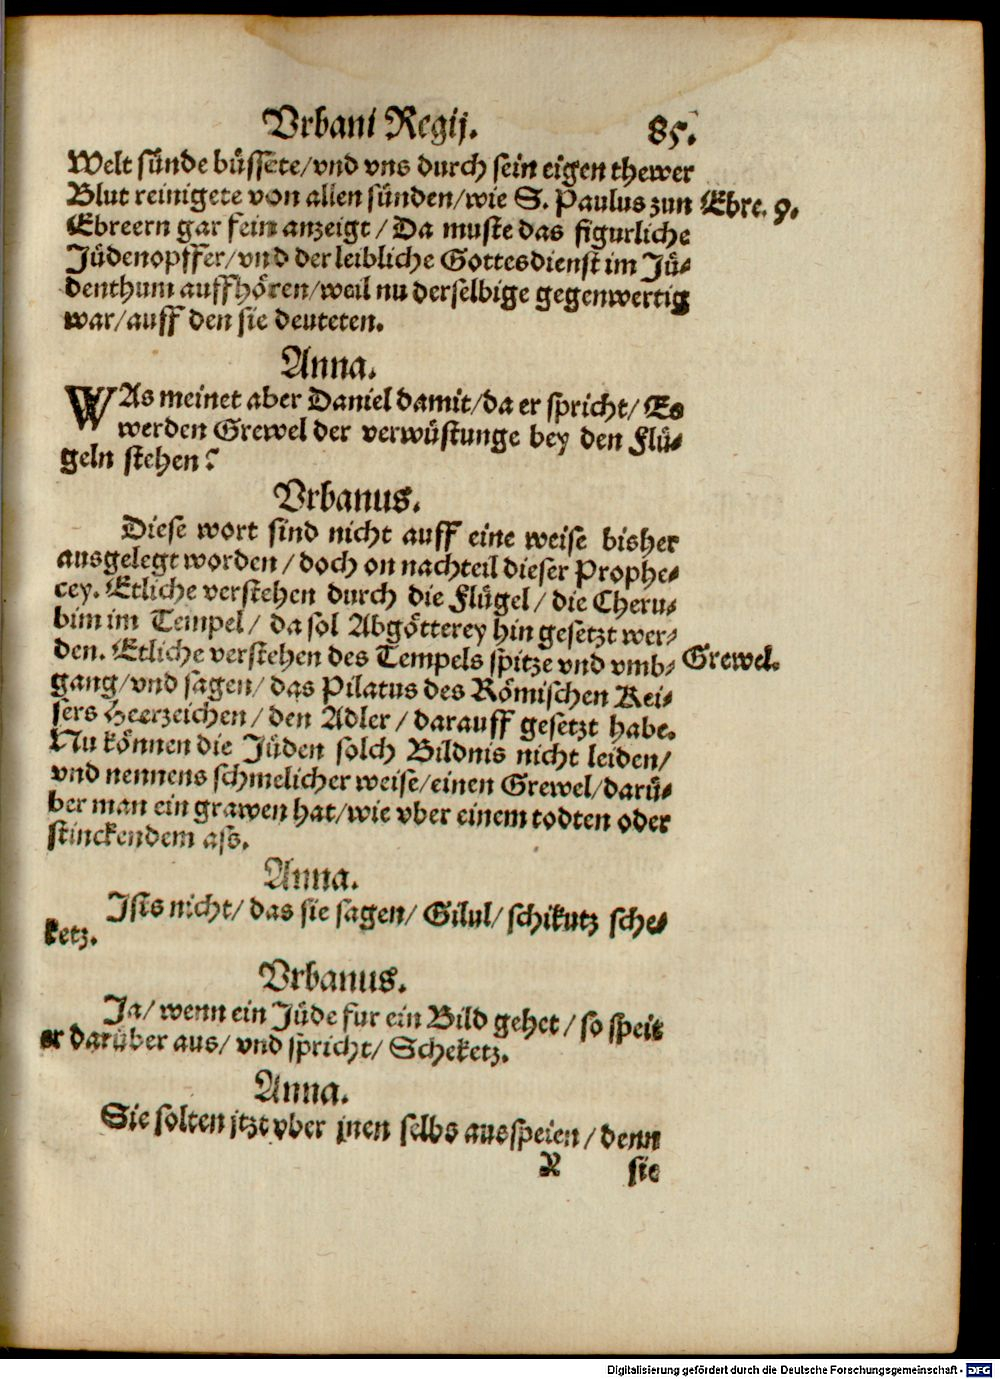 Vrbani Regij. 85.
Welt sünde büssete/vnd vns durch sein eigen thewer
Blut reinigete von allen sünden/wie S. Paulus zun Ebre. 9.
Ebreern gar fein anzeigt/Da muste das figurliche
Jüdenopffer/vnd der leibliche Gottesdienst im Jü-
denthum auffhören/weil nu derselbige gegenwertig
war/auff den sie deuteten.
Anna.
WAs meinet aber Daniel damit/da er spricht/Es
werden Grewel der verwüstunge bey den Flü-
geln stehen?
Vrbanus.
Diese wort sind nicht auff eine weise bisher
ausgelegt worden/doch on nachteil dieser Prophe-
cey. Etliche verstehen durch die Flügel/die Cheru-
bim im Tempel/da sol Abgötterey hin gesetzt wer-
den. Etliche verstehen des Tempels spitze vnd vmb- Grewel.
gang/vnd sagen/das Pilatus des Römischen Kei-
sers Heerzeichen/den Adler/darauff gesetzt habe.
Nu können die Jüden solch Bildnis nicht leiden/
vnd nennens schmelicher weise/einen Grewel/darü-
ber man ein grawen hat/wie vber einem todten oder
stinckendem ass.
Anna.
Ists nicht/das sie sagen/Gilul/schikutz sche-
ketz.
Vrbanus.
Ja/wenn ein Jüde fur ein Bild gehet/so speit
er darüber aus/vnd spricht/Scheketz.
Anna.
Sie solten jtzt vber jnen selbs ausspeien/denn
R sie
Digitalisierung gefördert durch die Deutsche Forschungsgemeinschaft - DFG